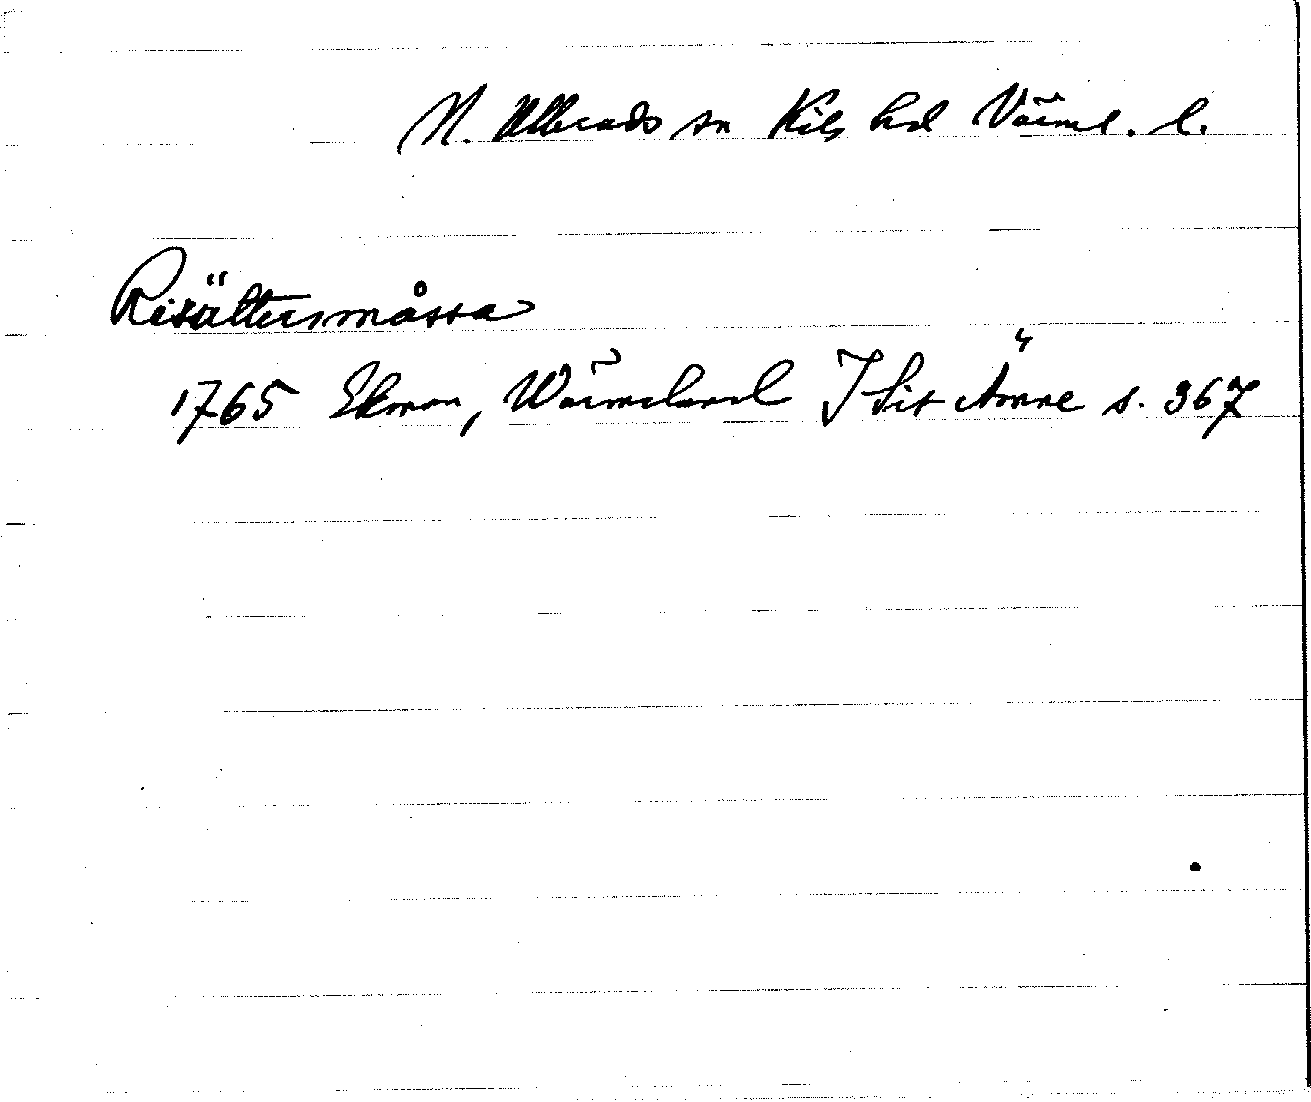 N. Ullerads sn Kils hd Värml. l.
Risältersmåssa
1765 Ekman, Wärmeland I Sit Ämne s. 367